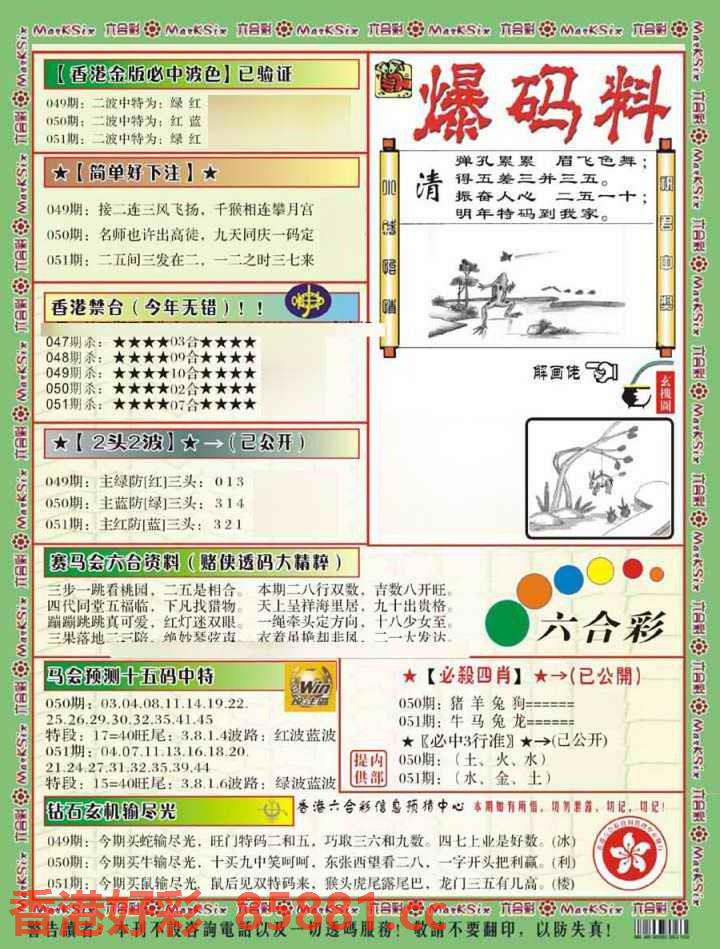 MarKSix 六合彩 MarKSix 六合彩 MarKSix 六合彩 MarKSix 六合彩 MarKSix 六合彩 MarKSix
【香港金版必中波色】已验证
049期：二波中特为：绿 红
050期：二波中特为：红 蓝
051期：二波中特为：绿 红
★【简单好下注】★
049期：接二连三风飞扬，千猴相连攀月宫
050期：名师也许出高徒，九天同庆一码定
051期：二五间三发在二，一二之时三七来
香港禁合（今年无错）！！
047期杀：★★★★03合★★★★
048期杀：★★★★09合★★★★
049期杀：★★★★10合★★★★
050期杀：★★★★02合★★★★
051期杀：★★★★07合★★★★
★【2头2波】★→(已公开)
049期：主绿防[红]三头：0 1 3
050期：主蓝防[绿]三头：3 1 4
051期：主红防[蓝]三头：3 2 1
爆码料
清
弹孔累累 眉飞色舞；
得五差三并三五。
振奋人心 二五一十；
明年特码到我家。
解画佬
玄機圖
赛马会六合资料（赌侠透码大精粹）
三步一跳看桃园，二五是相合。 本期二八行双数，吉数八开旺。
四代同堂五福临，下凡找猎物。 天上呈祥海里居，九十出贵格。
蹦蹦跳跳真可爱，红灯迷双眼。 一绳牵头定方向，十八少女至。
三果落地二三陪，绝妙琴弦声。 衣着虽艳却非凤，二一大发达。
六合彩
马会预测十五码中特
050期：03.04.08.11.14.19.22.
25.26.29.30.32.35.41.45
特段：17=40旺尾：3.8.1.4波路：红波蓝波
051期：04.07.11.13.16.18.20.
21.24.27.31.32.35.39.44
特段：15=40旺尾：3.8.1.6波路：绿波蓝波
Win
★【必殺四肖】★→(已公開)
050期：猪 羊 兔 狗======
051期：牛 马 兔 龙======
★〖必中3行准〗★→(已公开)
050期：（土、火、水）
051期：（水、金、土）
提内
供部
钻石玄机输尽光
香港六合彩信息预猜中心 本期如有所悟，切勿泄露，切记，切记！
049期：今期买蛇输尽光，旺门特码二和五，巧取三六和九数。四七上业是好数。(冰)
050期：今期买牛输尽光，十买九中笑呵呵，东张西望看二八，一字开头把利赢。(利)
051期：今期买鼠输尽光，鼠后见双特码来，猴头虎尾露尾巴，龙门三五有几高。(楼)
香港好彩 85881.cc
警告讀者：本刊不設咨詢電話以及一切透碼服務！敬請不要翻印，以防失真！